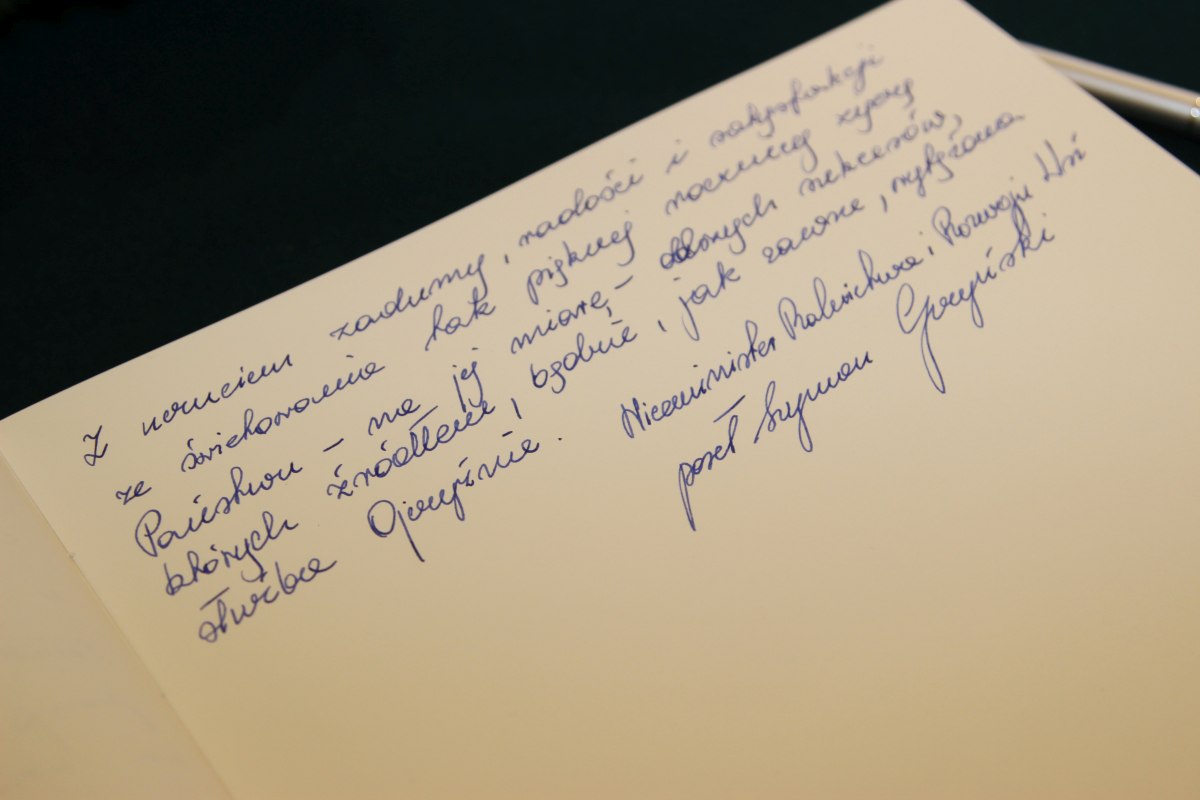 Z uczuciem zadumy, radości i satysfakcji
ze świętowania tak pięknej rocznicy życzę
Państwu – na jej miarę – dalszych sukcesów,
których źródłem, będzie, jak zawsze, wytężona
służba Ojczyźnie. Wiceminister Rolnictwa i Rozwoju Wsi
poseł Szymon Giżyński